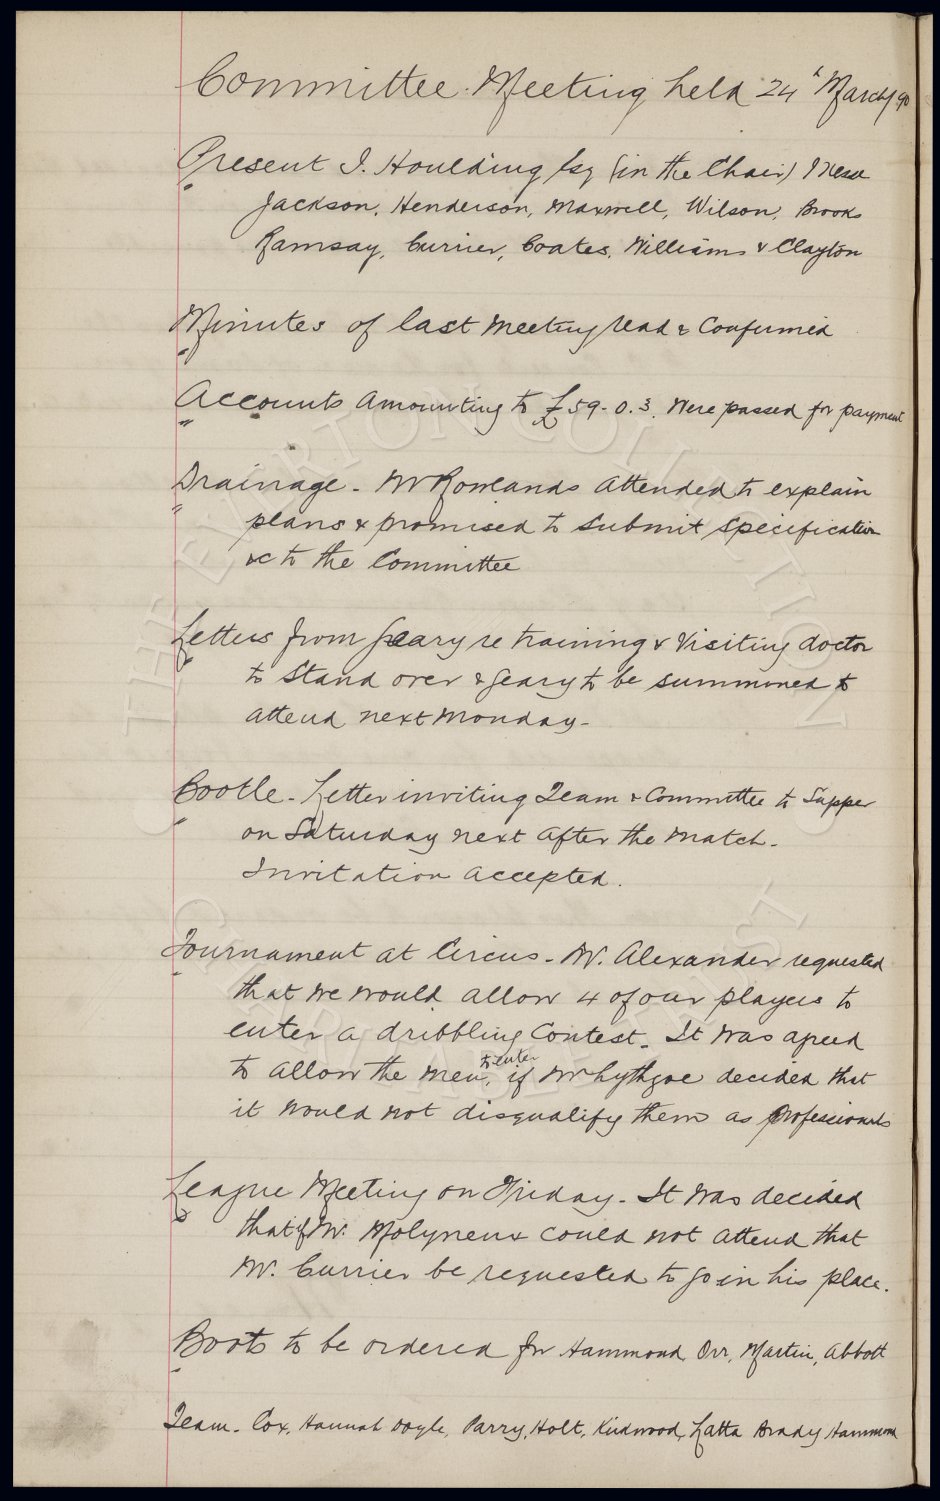 Committee Meeting held 24th March/90
Present J. Houlding Esq (in the Chair) Messrs
Jackson, Henderson, Maxwell, Wilson, Brooks
Ramsay, Currier, Coates, Williams & Clayton
Minutes of last Meeting read & Confirmed
Accounts Amounting to £59-0.3. Were passed for payment
Drainage - Mr Rowlands Attended to explain
plans & promised to submit specification
&c to the Committee
Letters from Geary re training & Visiting doctor
to Stand over & Geary to be summoned to
attend next Monday -
Bootle - Letter inviting Team & Committee to Supper
on Saturday next after the Match -
Invitation accepted.
Tournament at Circus - Mr. Alexander requested
that we would allow 4 of our players to
enter a dribbling Contest - It was agreed
to allow the men, to enter if Mr Lythgoe decided that
it would not disqualify them as professionals
League Meeting on Friday - It was decided
that if Mr. Molyneux could not attend that
Mr. Currier be requested to go in his place.
Boots to be ordered for Hammond, Orr, Martin, Abbott
Team - Cox, Hannah Doyle, Parry, Holt, Kirkwood, Latta Brady Hammond
THE EVERTON COLLECTION
CHARITABLE TRUST